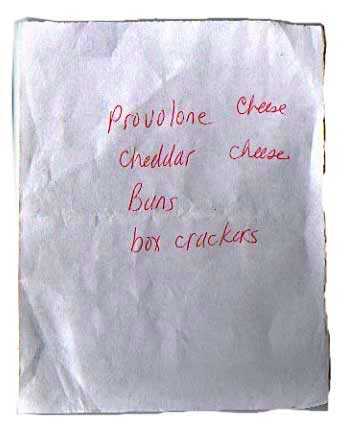 Provolone Cheese
Cheddar cheese
Buns
box crackers